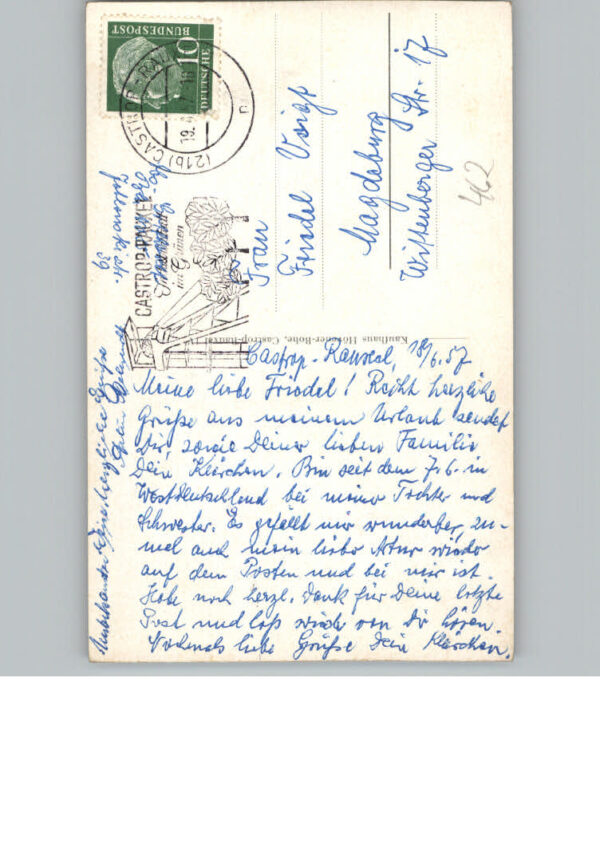 DEUTSCHE
BUNDESPOST
10
(21b) CASTROP-RAUXEL
19.
CASTROP-RAUXEL
Industriestadt
im Grünen
Frau
Friedel Voigt
Magdeburg
Wittenberger Str. 17
462
39
Kaufhaus Castrop-Rauxel
Castrop-Rauxel, 18/6.57
Meine liebe Friedel! Recht herzliche
Grüße aus meinem Urlaub sendet
Dir, sowie Deiner lieben Familie
Dein Klärchen. Bin seit dem 7.6. in
Westdeutschland bei meiner Tochter und
Schwester. Es gefällt mir wunderbar, zu-
mal auch mein lieber Artur wieder
auf dem Posten und bei mir ist.
Habe noch herzl. Dank für Deine letzte
Post und laß wieder von Dir hören.
Nochmals liebe Grüße Dein Klärchen.
Unbekannterweise herzliche Grüße